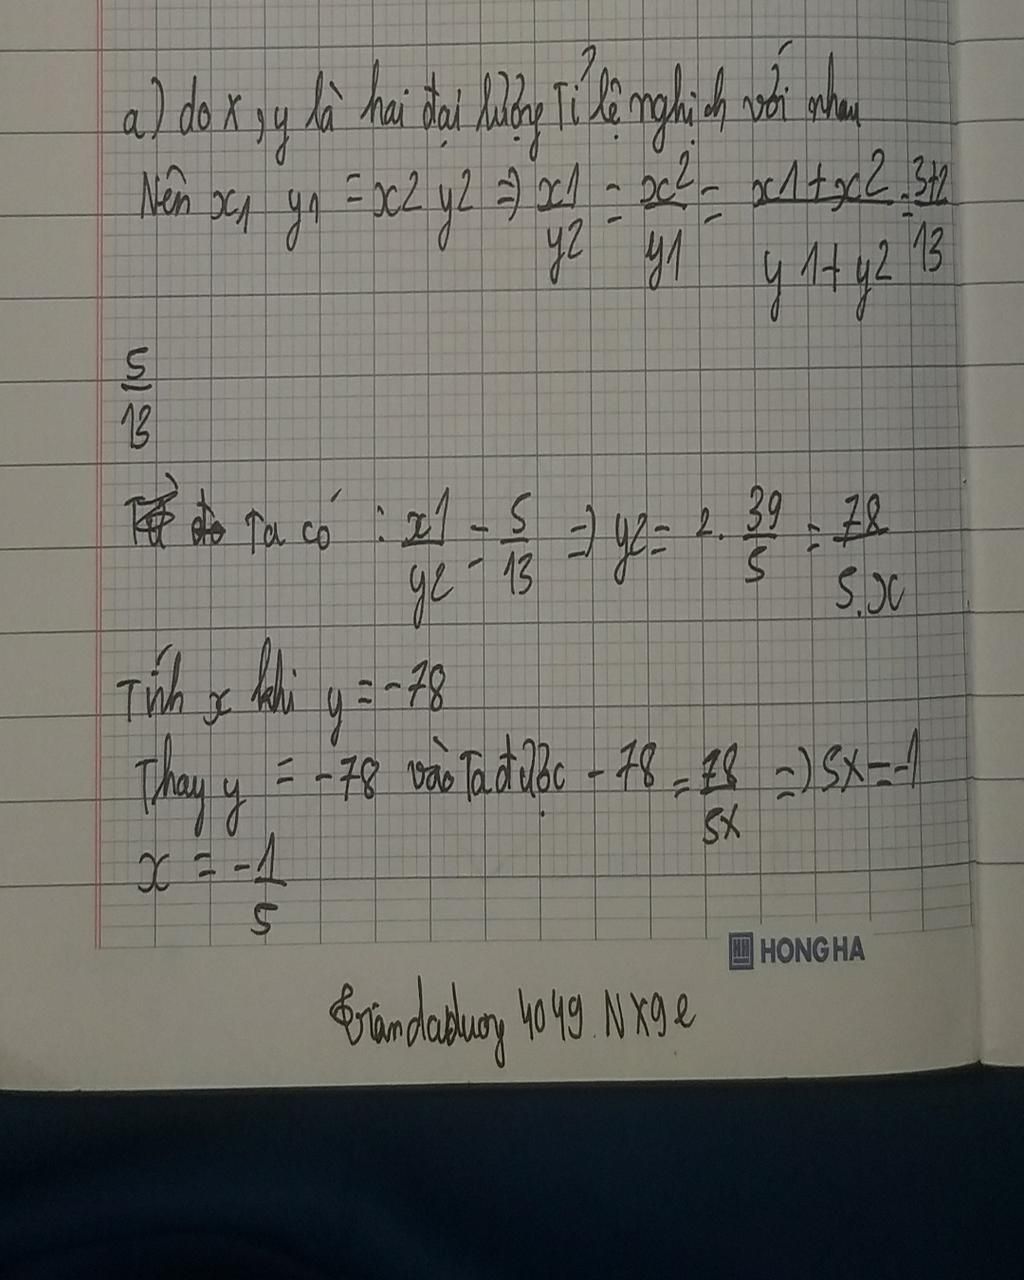 a) do x, y là hai đại lượng Tỉ lệ nghịch với nhau
Nên x1 y1 = x2 y2 => x1/y2 = x2/y1 = x1+x2/y1+y2 = 3+2/13
5/13
Ta có : x1/y2 = 5/13 => y2 = 2. 39/5 = 78/5.x
Tính x khi y = -78
Thay y = -78 vào Ta được -78 = 78/5x => 5x = -1
x = -1/5
HONG HA
4049.NX9e